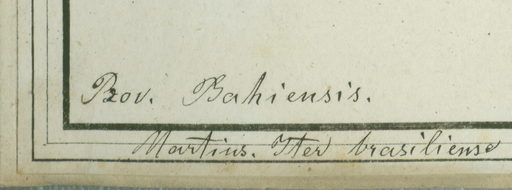 Prov. Bahiensis.
Martius. Iter brasiliense